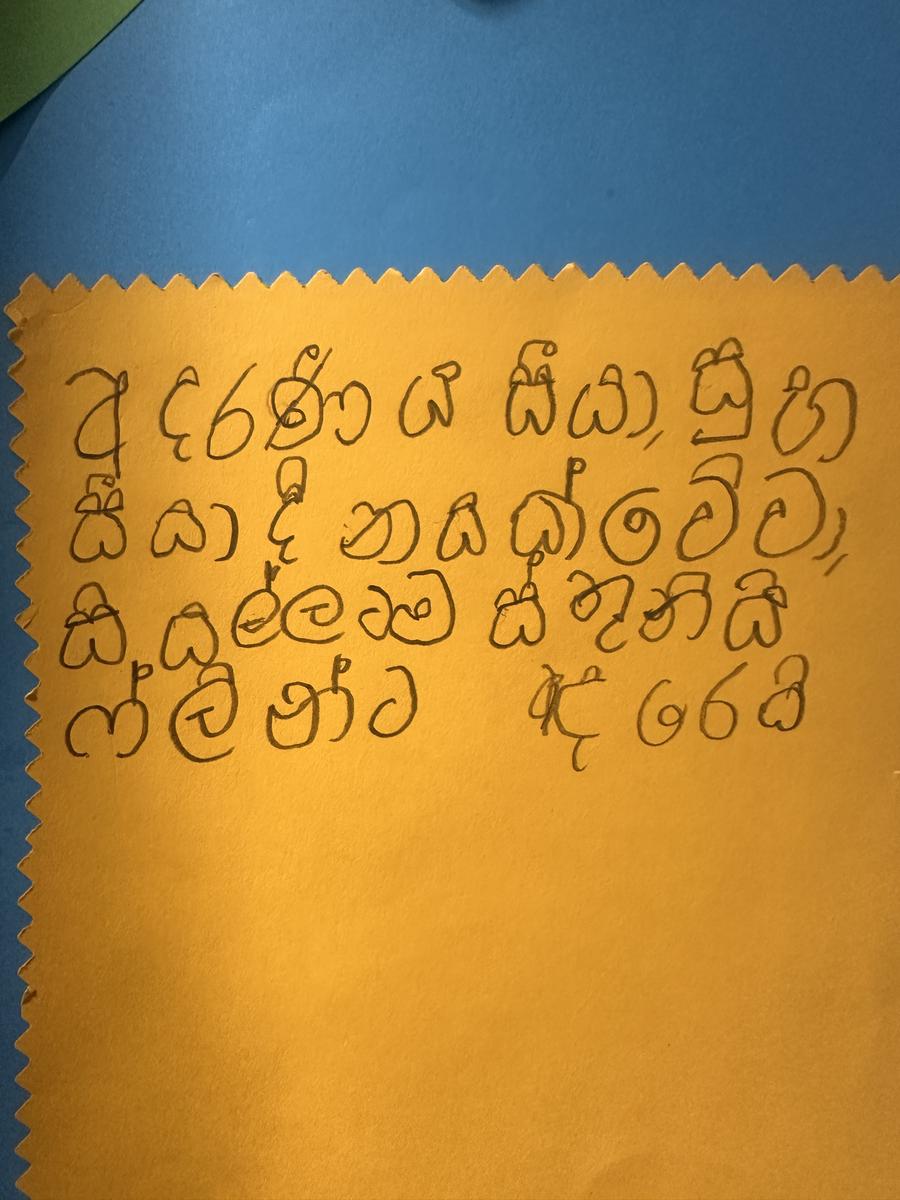 අදරණීය සීයා, සුභ
සීයා දිනයක් වේවා,
සියල්ලටම ස්තූතියි
ෆ්ලින්ට ආදරෙයි